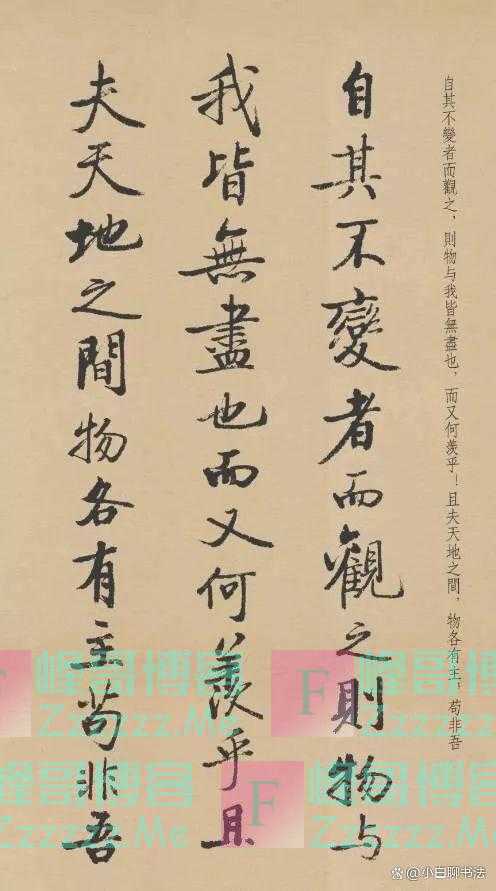 自其不變者而觀之，則物与我皆無盡也，而又何羨乎！且夫天地之間，物各有主，苟非吾
自其不變者而觀之則物与
我皆無盡也而又何羨乎且
夫天地之間物各有主苟非吾
F 峰哥博客
Zzzzzz.Me
F 峰哥博客
Zzzzzz.Me
@小白聊书法